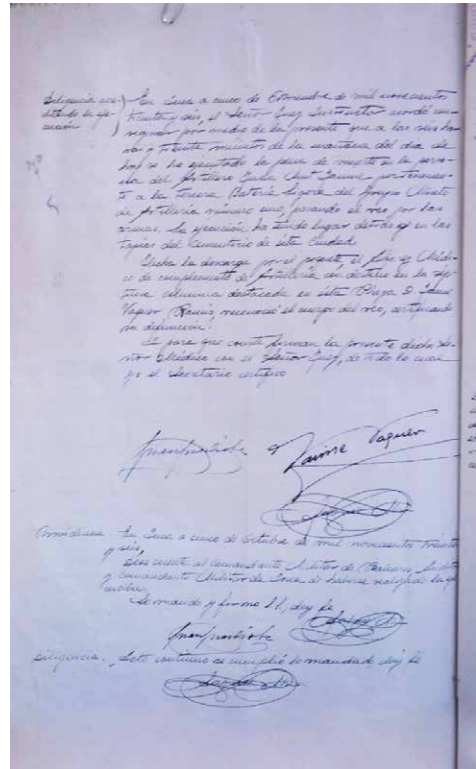 Diligencia acre-
ditando la eje-
cución
En Inca a cinco de Noviembre de mil novecientos
treinta y seis, el Señor Juez Instructor acordó con-
signar por medio de la presente que a las seis ho-
ras y treinta minutos de la mañana del día de
hoy se ha ejecutado la pena de muerte en la perso-
na del Artillero Jaume pertenecien-
te a la tercera Batería ligera del Grupo Mixto
de Artillería número uno, pasando el reo por las
armas. La ejecución ha tenido lugar detrás en las
tapias del Cementerio de esta Ciudad
Hecha la descarga por el piquete, el Médi-
co de complemento de Artillería con destino en la
columna destacada en esta Plaza D. Jaime
Vaquer reconoció el cuerpo del reo, certificando
su defunción.
Y para que conste firman la presente dicho Se-
ñor Médico con el Señor Juez, de todo lo cual
yo el Secretario certifico
Jaime Vaquer
Providencia. En Inca a cinco de Octubre de mil novecientos treinta
y seis.
Dése cuenta al Comandante Militar de Baleares,
y Comandante Militar de Inca de haberse realizado la eje-
cución.
Lo mandó y firma S.S., doy fe
Diligencia. Acto continuo se cumplió lo mandado, doy fe